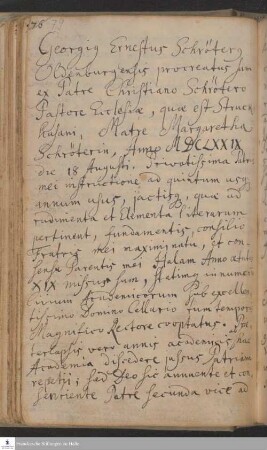 76
Georgig Ernestus Schröterg
Oldenburgensis procreatus sum
ex Patre Christiano Schrötero
Pastore Ecclesiæ, quæ est Struek
husani, Matre Margaretha
Schröterin, Anno MDCLXXIX
die 18 Augusti. Privatissima Patr
mei instructione ad quintum usq
annum usus, jactisq, quæ ad
rudimenta et Elementa literarum
pertinent, fundamentis, consilio
Fratris mei maximi natu, et con
sensu Parentis mei Halam Anno ætat
XIX missus sum, statimq in numeru
civium Academicorum sub excellen
tissimo Domino Cellario tum tempor
Magnifico Rectore cooptatus.
terlapsis vero annis academiis hac
Academia discedere jussus Patriam
repetii, sed Deo sic annuente et con
sentiente Patre secunda vice ad